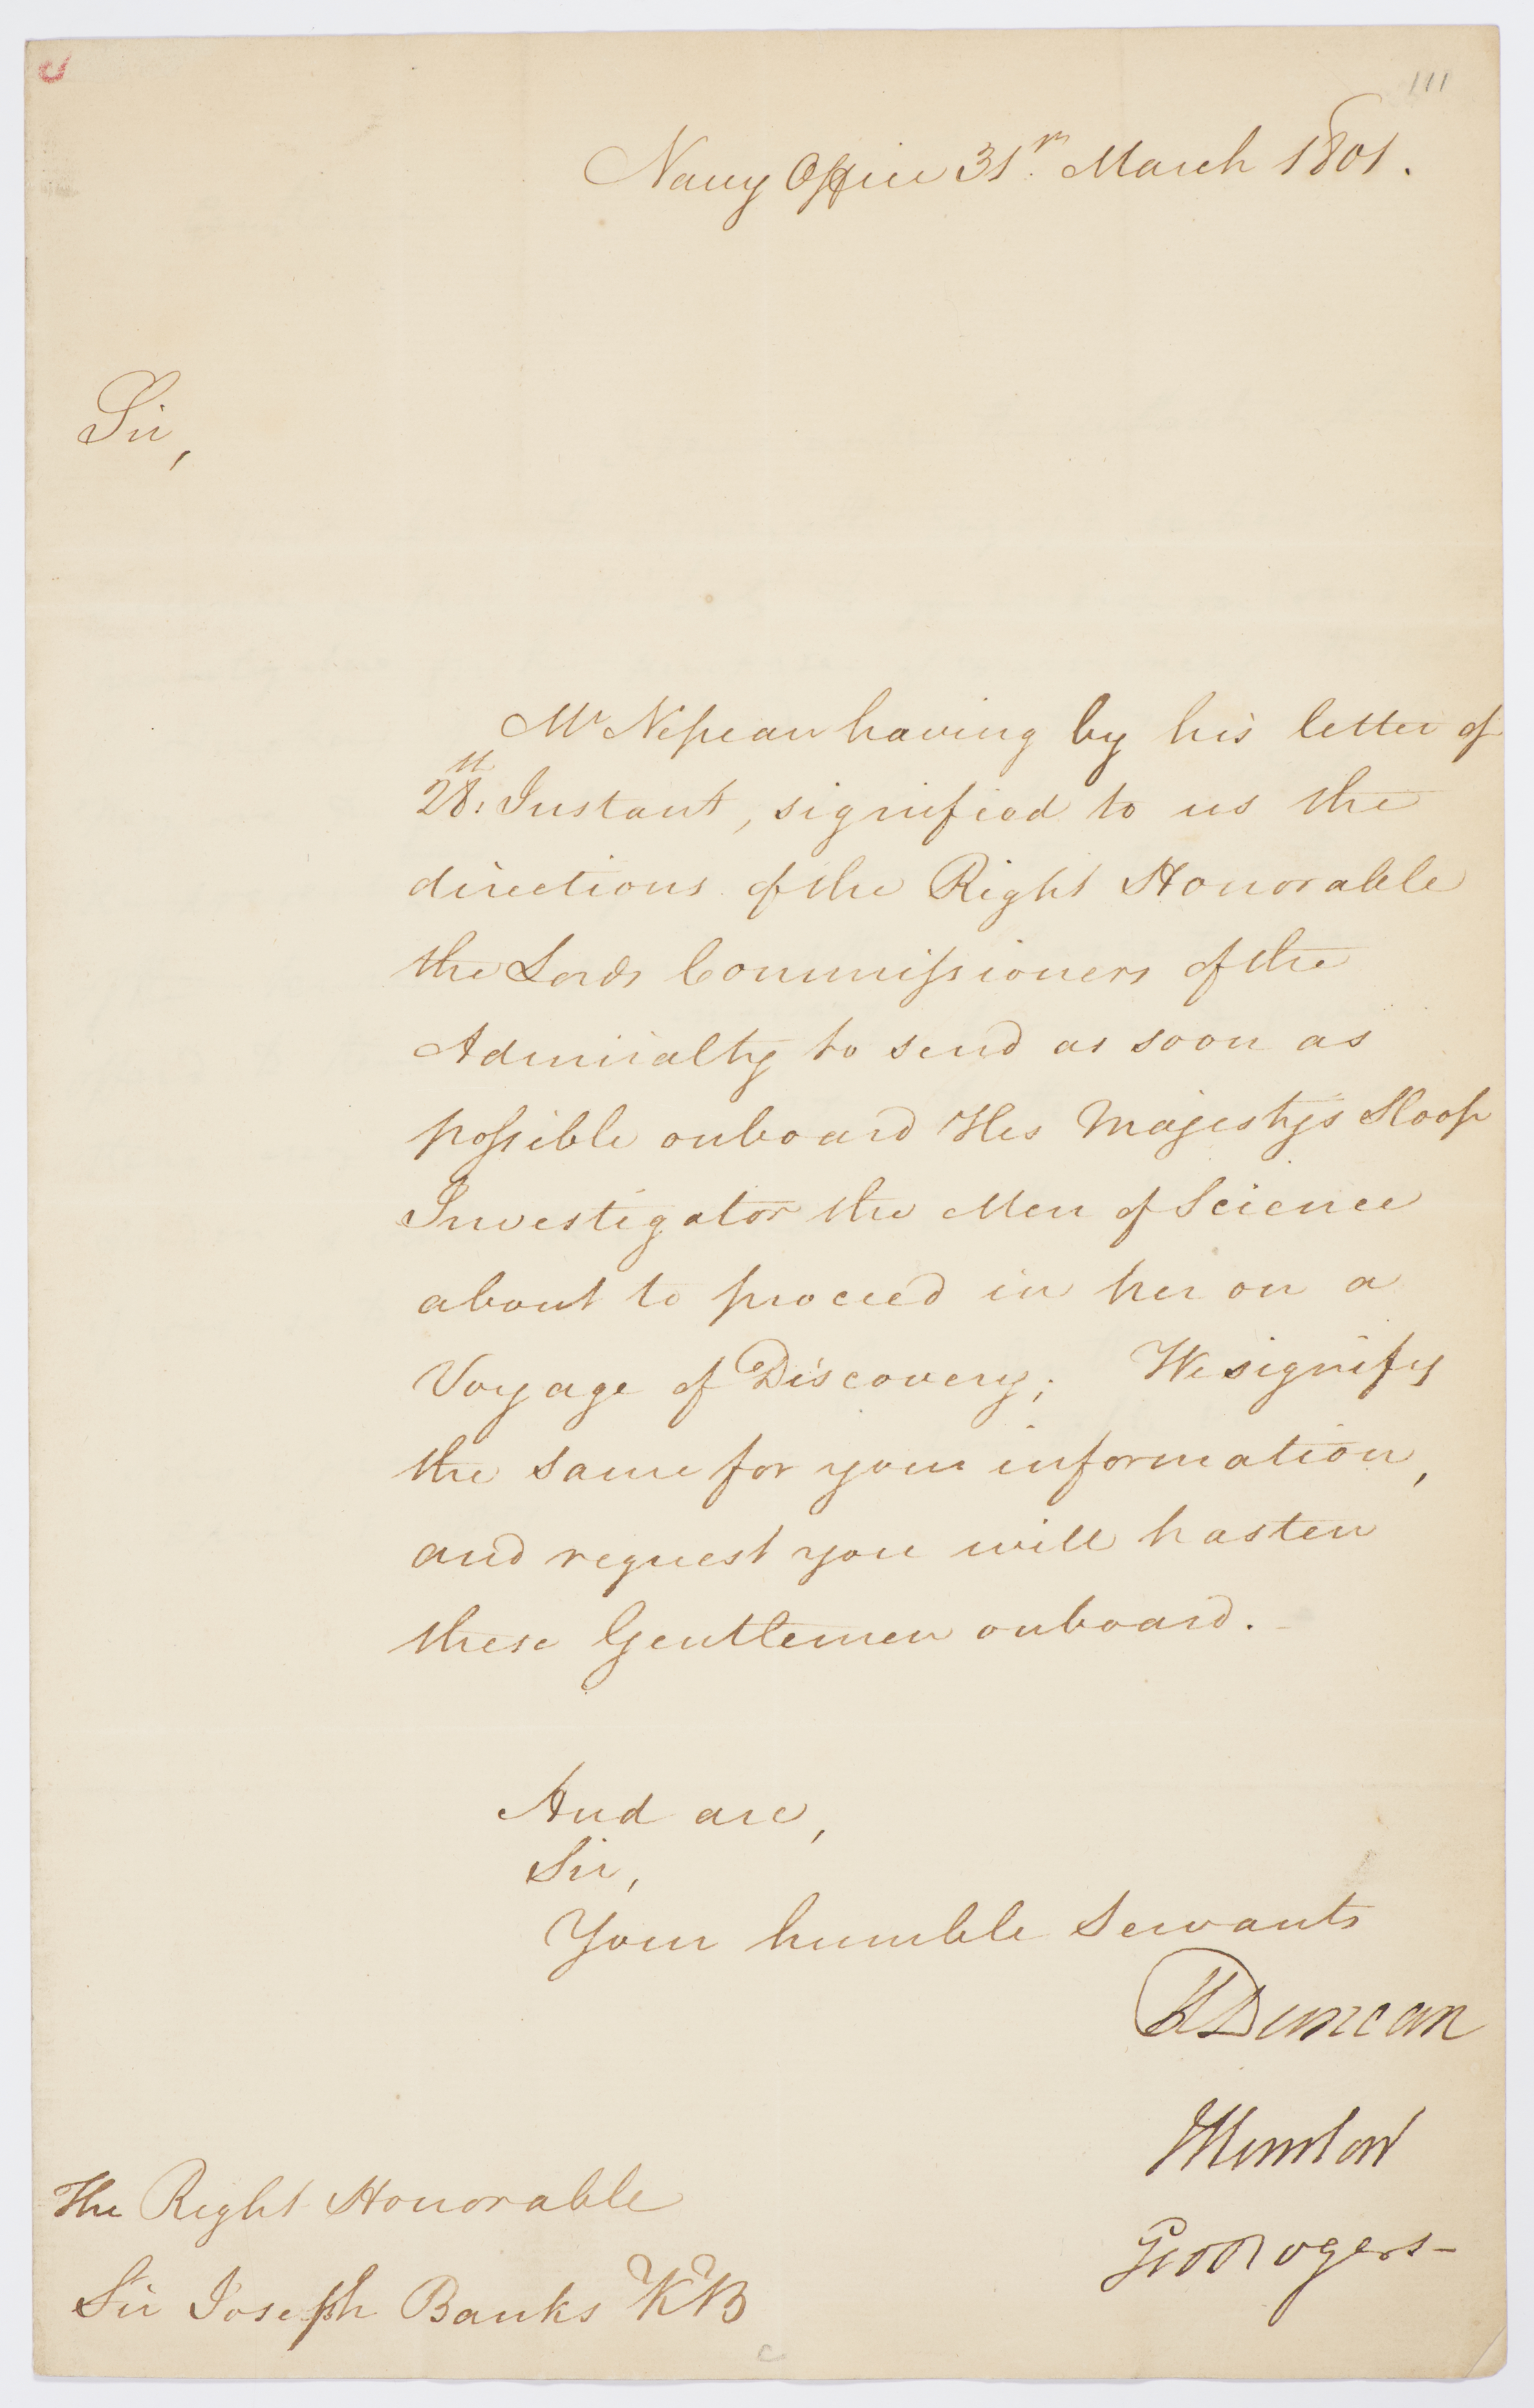 111
Navy Office 31st. March 1801.
Sir,
Mr Nepean having by his letter of
28th. Instant, signified to us the
directions of the Right Honorable
the Lords Commissioners of the
Admiralty to send as soon as
possible onboard His Majestys Sloop
Investigator the Men of Science
about to proceed in her on a
Voyage of Discovery; We signify
the same for your information,
and request you will hasten
these Gentlemen onboard.
And are,
Sir,
Your humble Servants
H Duncan
Geo Rogers
The Right Honorable
Sir Joseph Banks KB